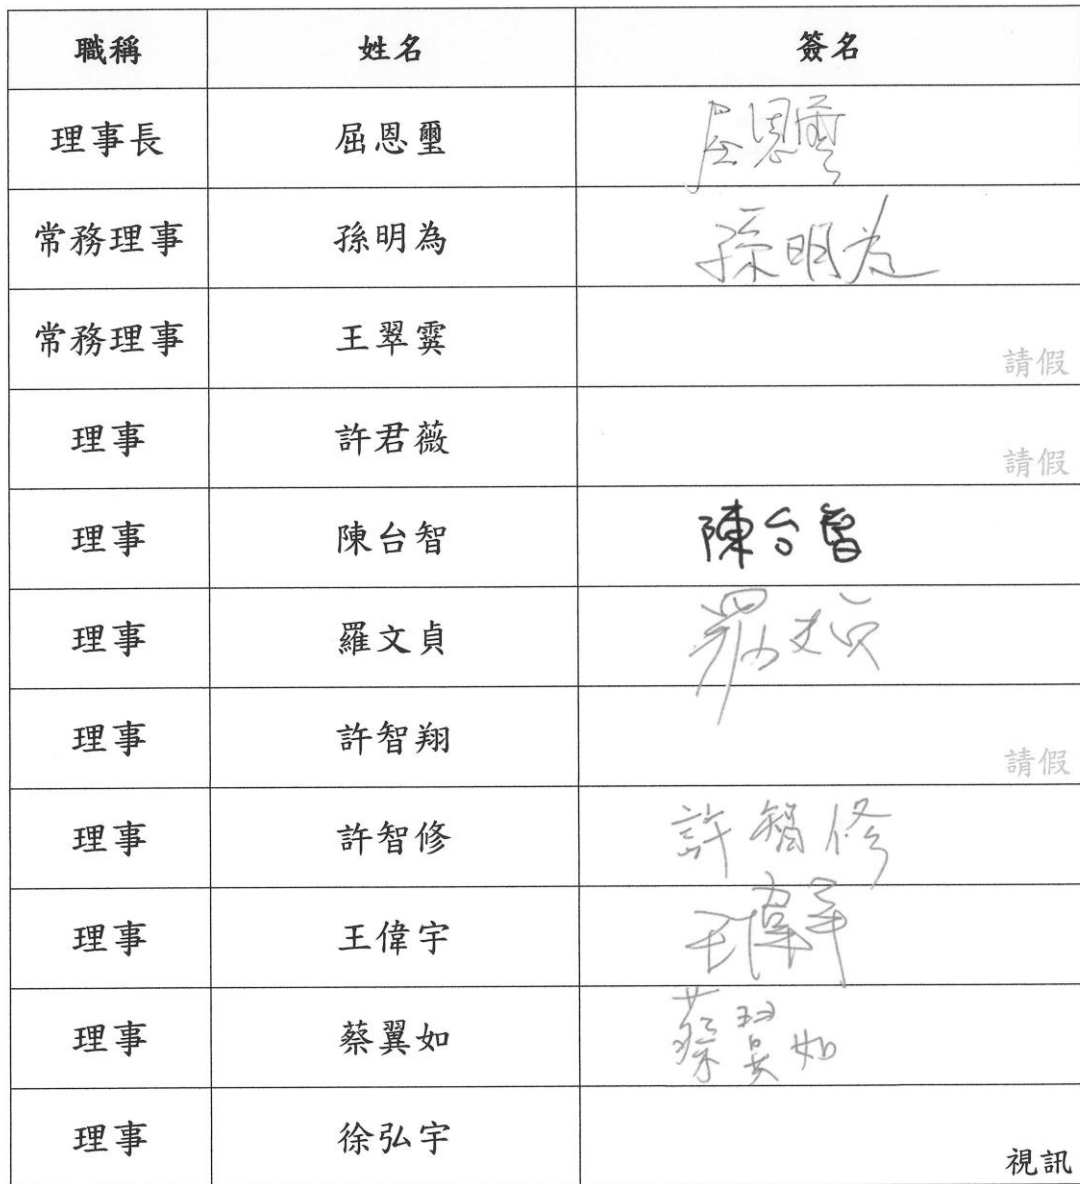 職稱 姓名 簽名
理事長 屈恩璽 屈恩璽
常務理事 孫明為 孫明為
常務理事 王翠霙 請假
理事 許君薇 請假
理事 陳台智 陳台智
理事 羅文貞 羅文貞
理事 許智翔 請假
理事 許智修 許智修
理事 王偉宇 王偉宇
理事 蔡翼如 蔡翼如
理事 徐弘宇 視訊